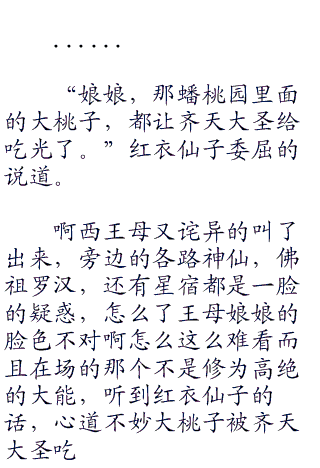 ......
“娘娘，那蟠桃园里面
的大桃子，都让齐天大圣给
吃光了。”红衣仙子委屈的
说道。
啊西王母又诧异的叫了
出来，旁边的各路神仙，佛
祖罗汉，还有星宿都是一脸
的疑惑，怎么了王母娘娘的
脸色不对啊怎么这么难看而
且在场的那个不是修为高绝
的大能，听到红衣仙子的
话，心道不妙大桃子被齐天
大圣吃